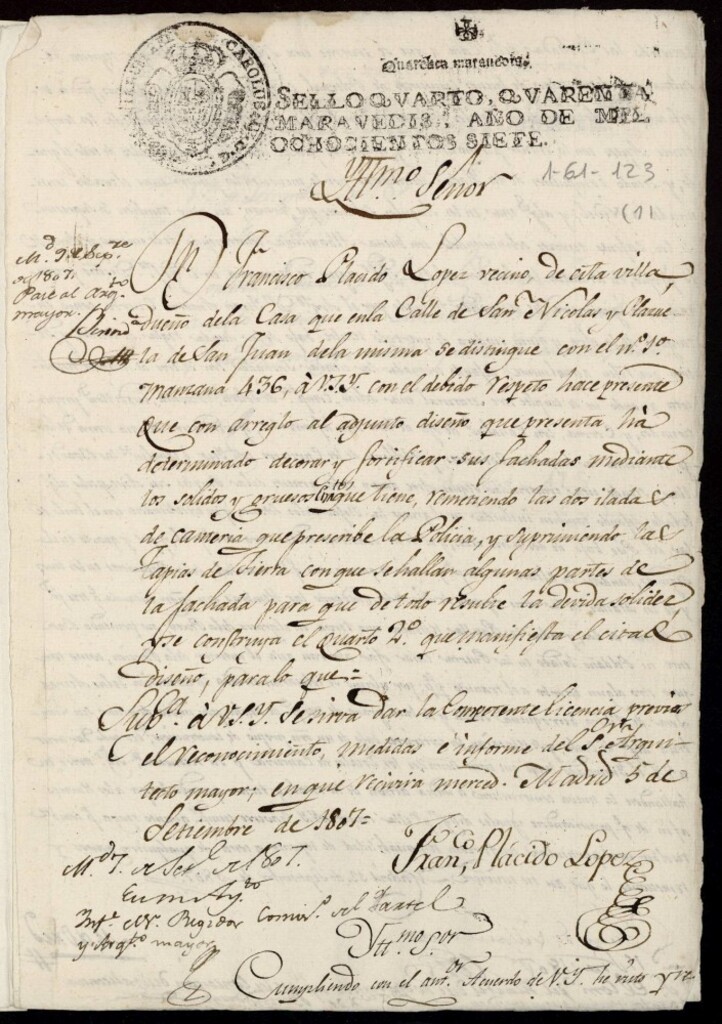 CAROLUS
Quarenta maravedis.
SELLO QVARTO, QVARENTA
MARAVEDIS, AÑO DE MIL
OCHOCIENTOS SIETE.
Ytt.mo Señor
1-61-123
(1)
M.d 9 de Sep.re
de 1807.
Pase al Arq.to
mayor.
D.n Francisco Placido Lopez vecino de esta villa,
dueño dela Casa que enla Calle de San Nicolas y Plazue
la de San Juan dela misma se distingue con el n.º 1º
manzana 436, à V.S.Y. con el debido respeto hace presente
Que con arreglo al adjunto diseño que presenta, hà
determinado decorar y fortificar sus fachadas mediante
los solidos y gruesos que tiene, remetiendo las dos iladas
de canteria que prescribe la Policia, y suprimiendo las
tapias de tierra con que se hallan algunas partes de
la fachada para que de todo resulte la devida solidez,
y se construya el Quarto 2.º que manifiesta el citado
diseño, para lo que=
Sup.ca à V.S.Y. se sirva dar la Competente licencia previos
el reconocimiento, medidas è informe del S.or Arqui-
tecto mayor; en que recivira merced. Madrid 5 de
Setiembre de 1807=
Fran.co Plácido Lopez
M.d 7. de Sep.e de 1807.
En su Ay.to
Inf.e el S.r Regidor Comis.o del Quartel
y Arq.to mayor
Ytt.mo S.or
Cumpliendo con el ant.or Acuerdo de V.Y. he visto y re